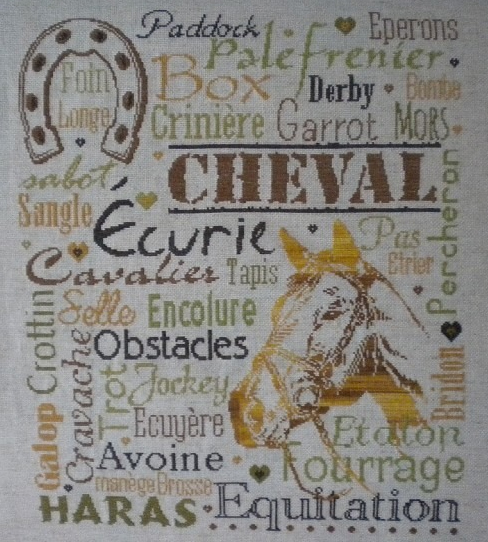 Paddock
Eperons
Palefrenier
Foin
Box
Derby
Bombe
Longe
Crinière
Garrot
MORS
CHEVAL
sabot
Percheran
Sangle
Écurie
Pas
Cavalier
Tapis
Etrier
Crottin
Selle
Encolure
Obstacles
Cravache
Trot
Jockey
Bridon
Galop
Ecuyère
Etalon
Avoine
Fourrage
manège
Brosse
HARAS
Equitation